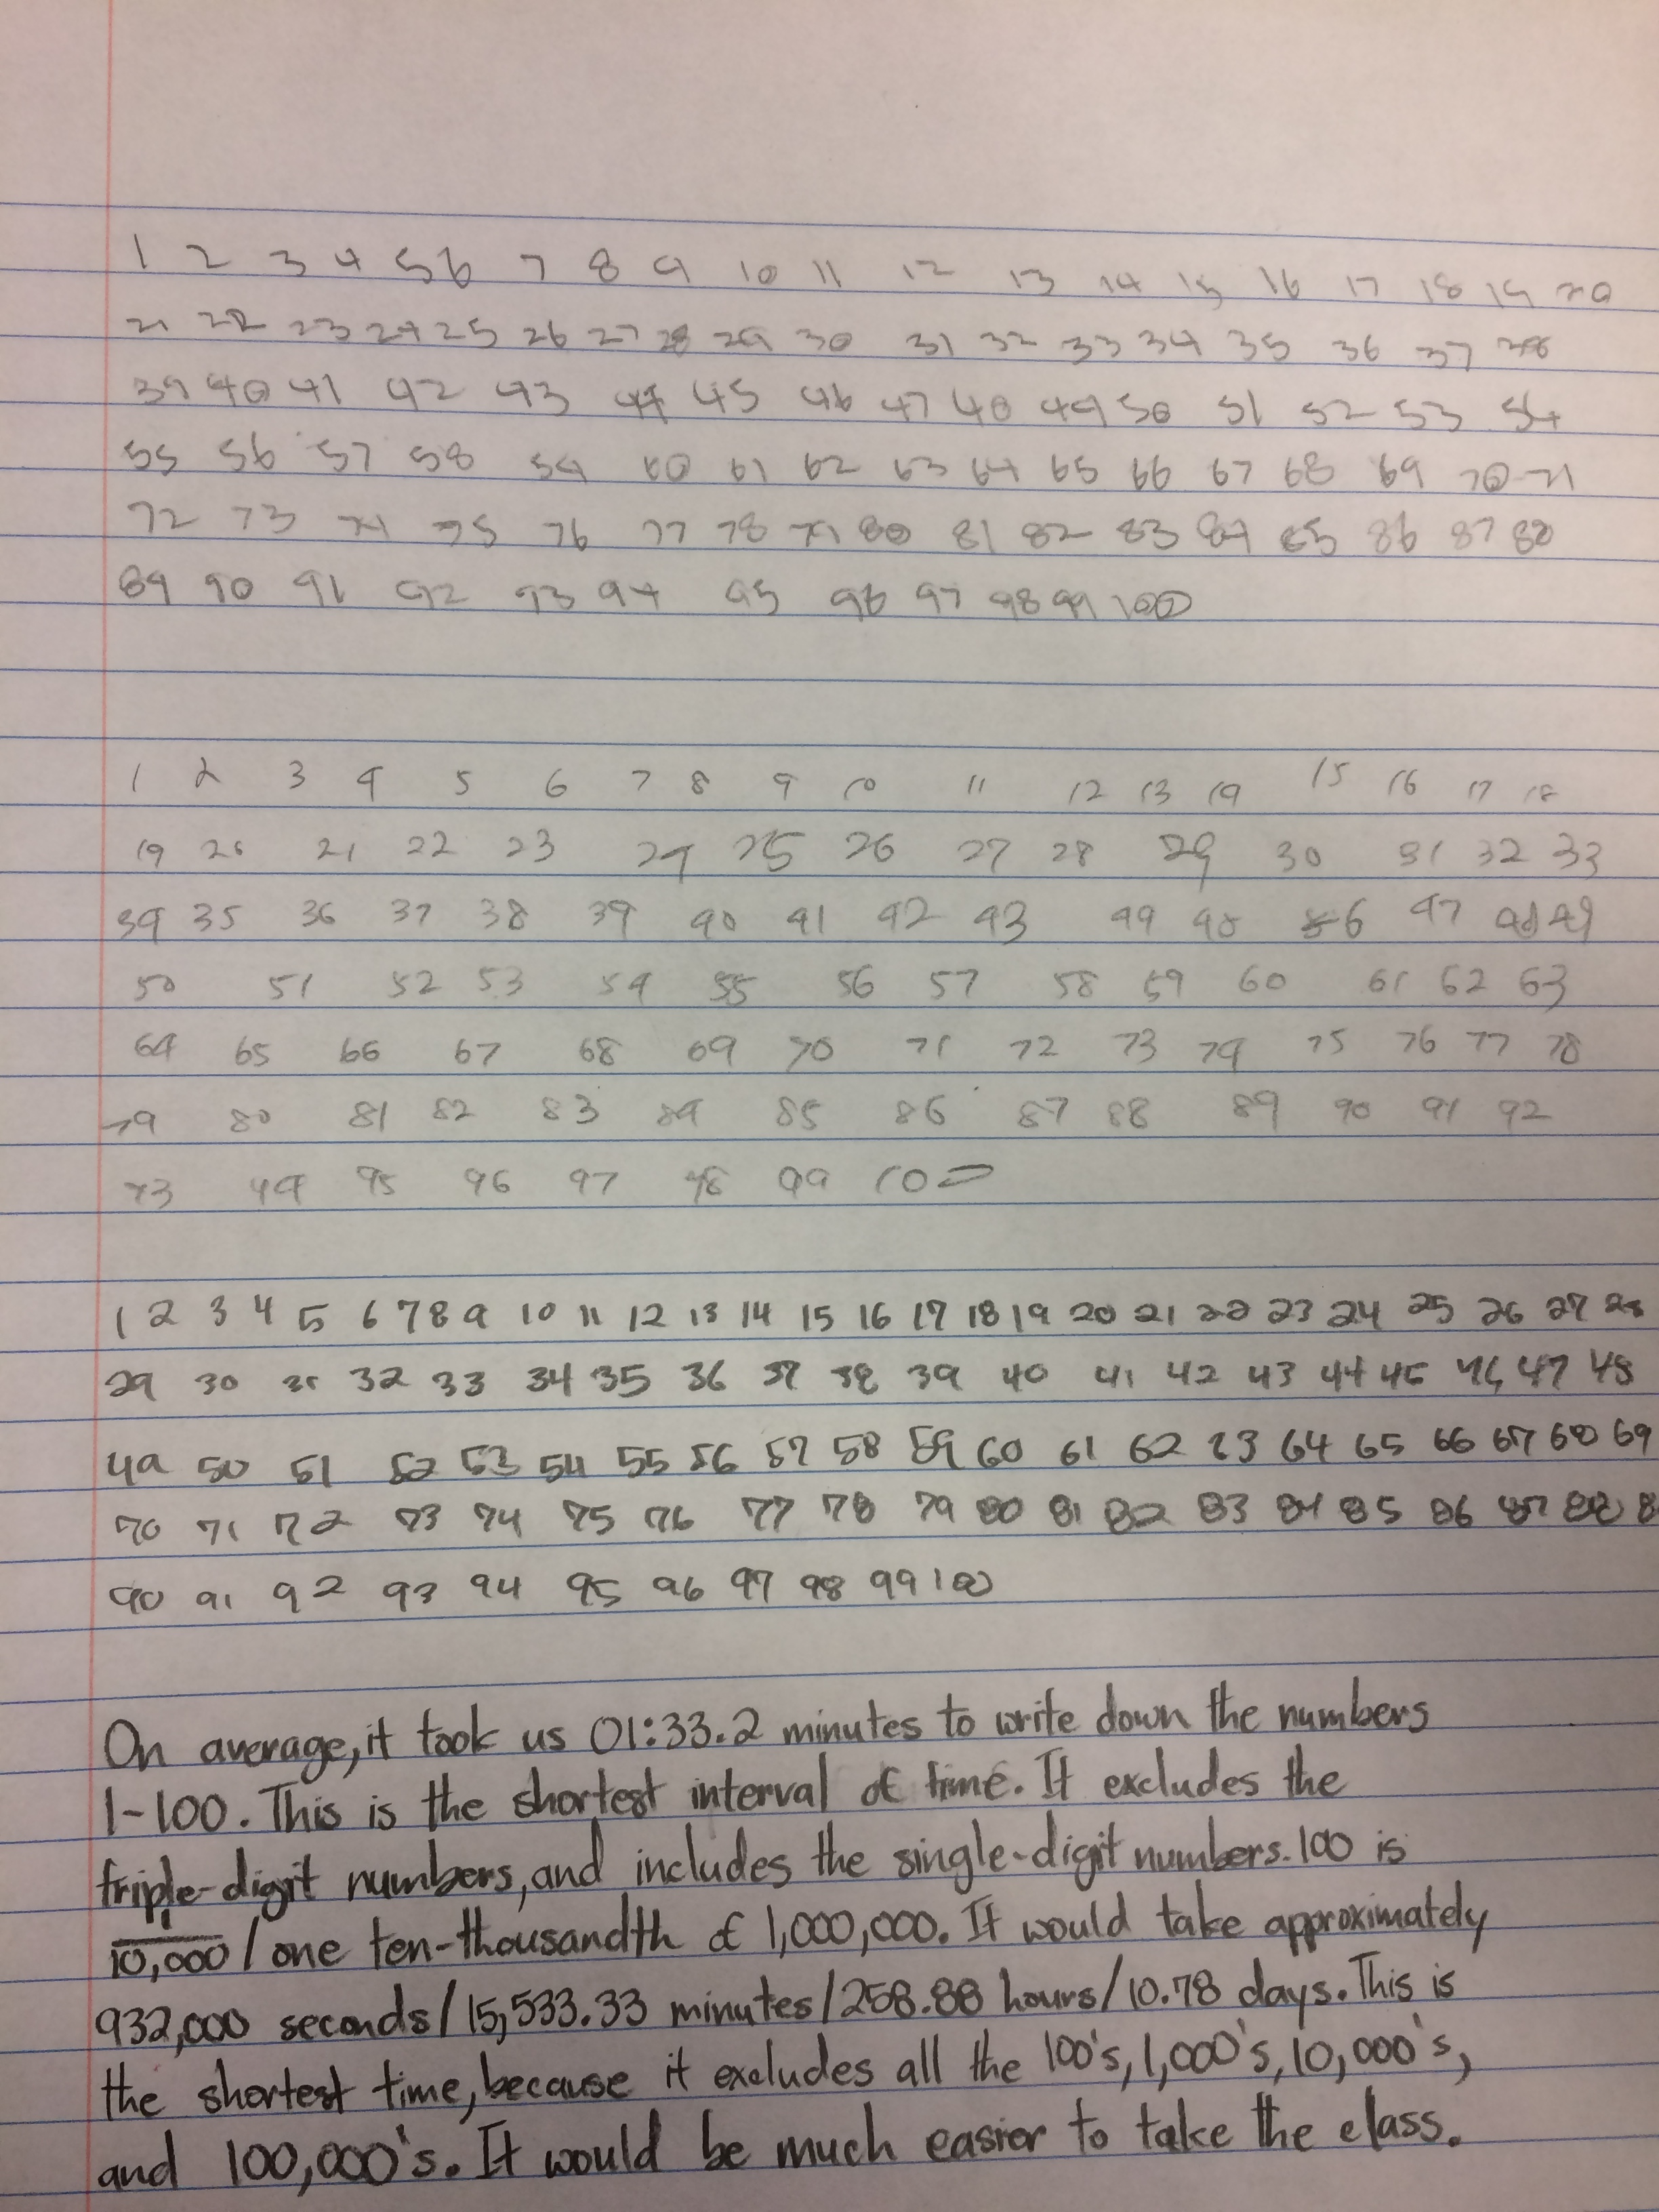 1 2 3 4 5 6 7 8 9 10 11 12 13 14 15 16 17 18 19 20
21 22 23 24 25 26 27 28 29 30 31 32 33 34 35 36 37 38
39 40 41 42 43 44 45 46 47 48 49 50 51 52 53 54
55 56 57 58 59 60 61 62 63 64 65 66 67 68 69 70 71
72 73 74 75 76 77 78 79 80 81 82 83 84 85 86 87 88
89 90 91 92 93 94 95 96 97 98 99 100
1 2 3 4 5 6 7 8 9 10 11 12 13 14 15 16 17 18
19 20 21 22 23 24 25 26 27 28 29 30 31 32 33
34 35 36 37 38 39 40 41 42 43 44 45 46 47 48 49
50 51 52 53 54 55 56 57 58 59 60 61 62 63
64 65 66 67 68 69 70 71 72 73 74 75 76 77 78
79 80 81 82 83 84 85 86 87 88 89 90 91 92
93 94 95 96 97 98 99 100
1 2 3 4 5 6 7 8 9 10 11 12 13 14 15 16 17 18 19 20 21 22 23 24 25 26 27 28
29 30 31 32 33 34 35 36 37 38 39 40 41 42 43 44 45 46 47 48
49 50 51 52 53 54 55 56 57 58 59 60 61 62 63 64 65 66 67 68 69
70 71 72 73 74 75 76 77 78 79 80 81 82 83 84 85 86 87 88 8
90 91 92 93 94 95 96 97 98 99 100
On average, it took us 01:33.2 minutes to write down the numbers
1-100. This is the shortest interval of time. It excludes the
triple-digit numbers, and includes the single-digit numbers. 100 is
1/10,000 / one ten-thousandth of 1,000,000. It would take approximately
932,000 seconds/15,533.33 minutes/258.88 hours/10.78 days. This is
the shortest time, because it excludes all the 100's, 1,000's, 10,000's,
and 100,000's. It would be much easier to take the class.